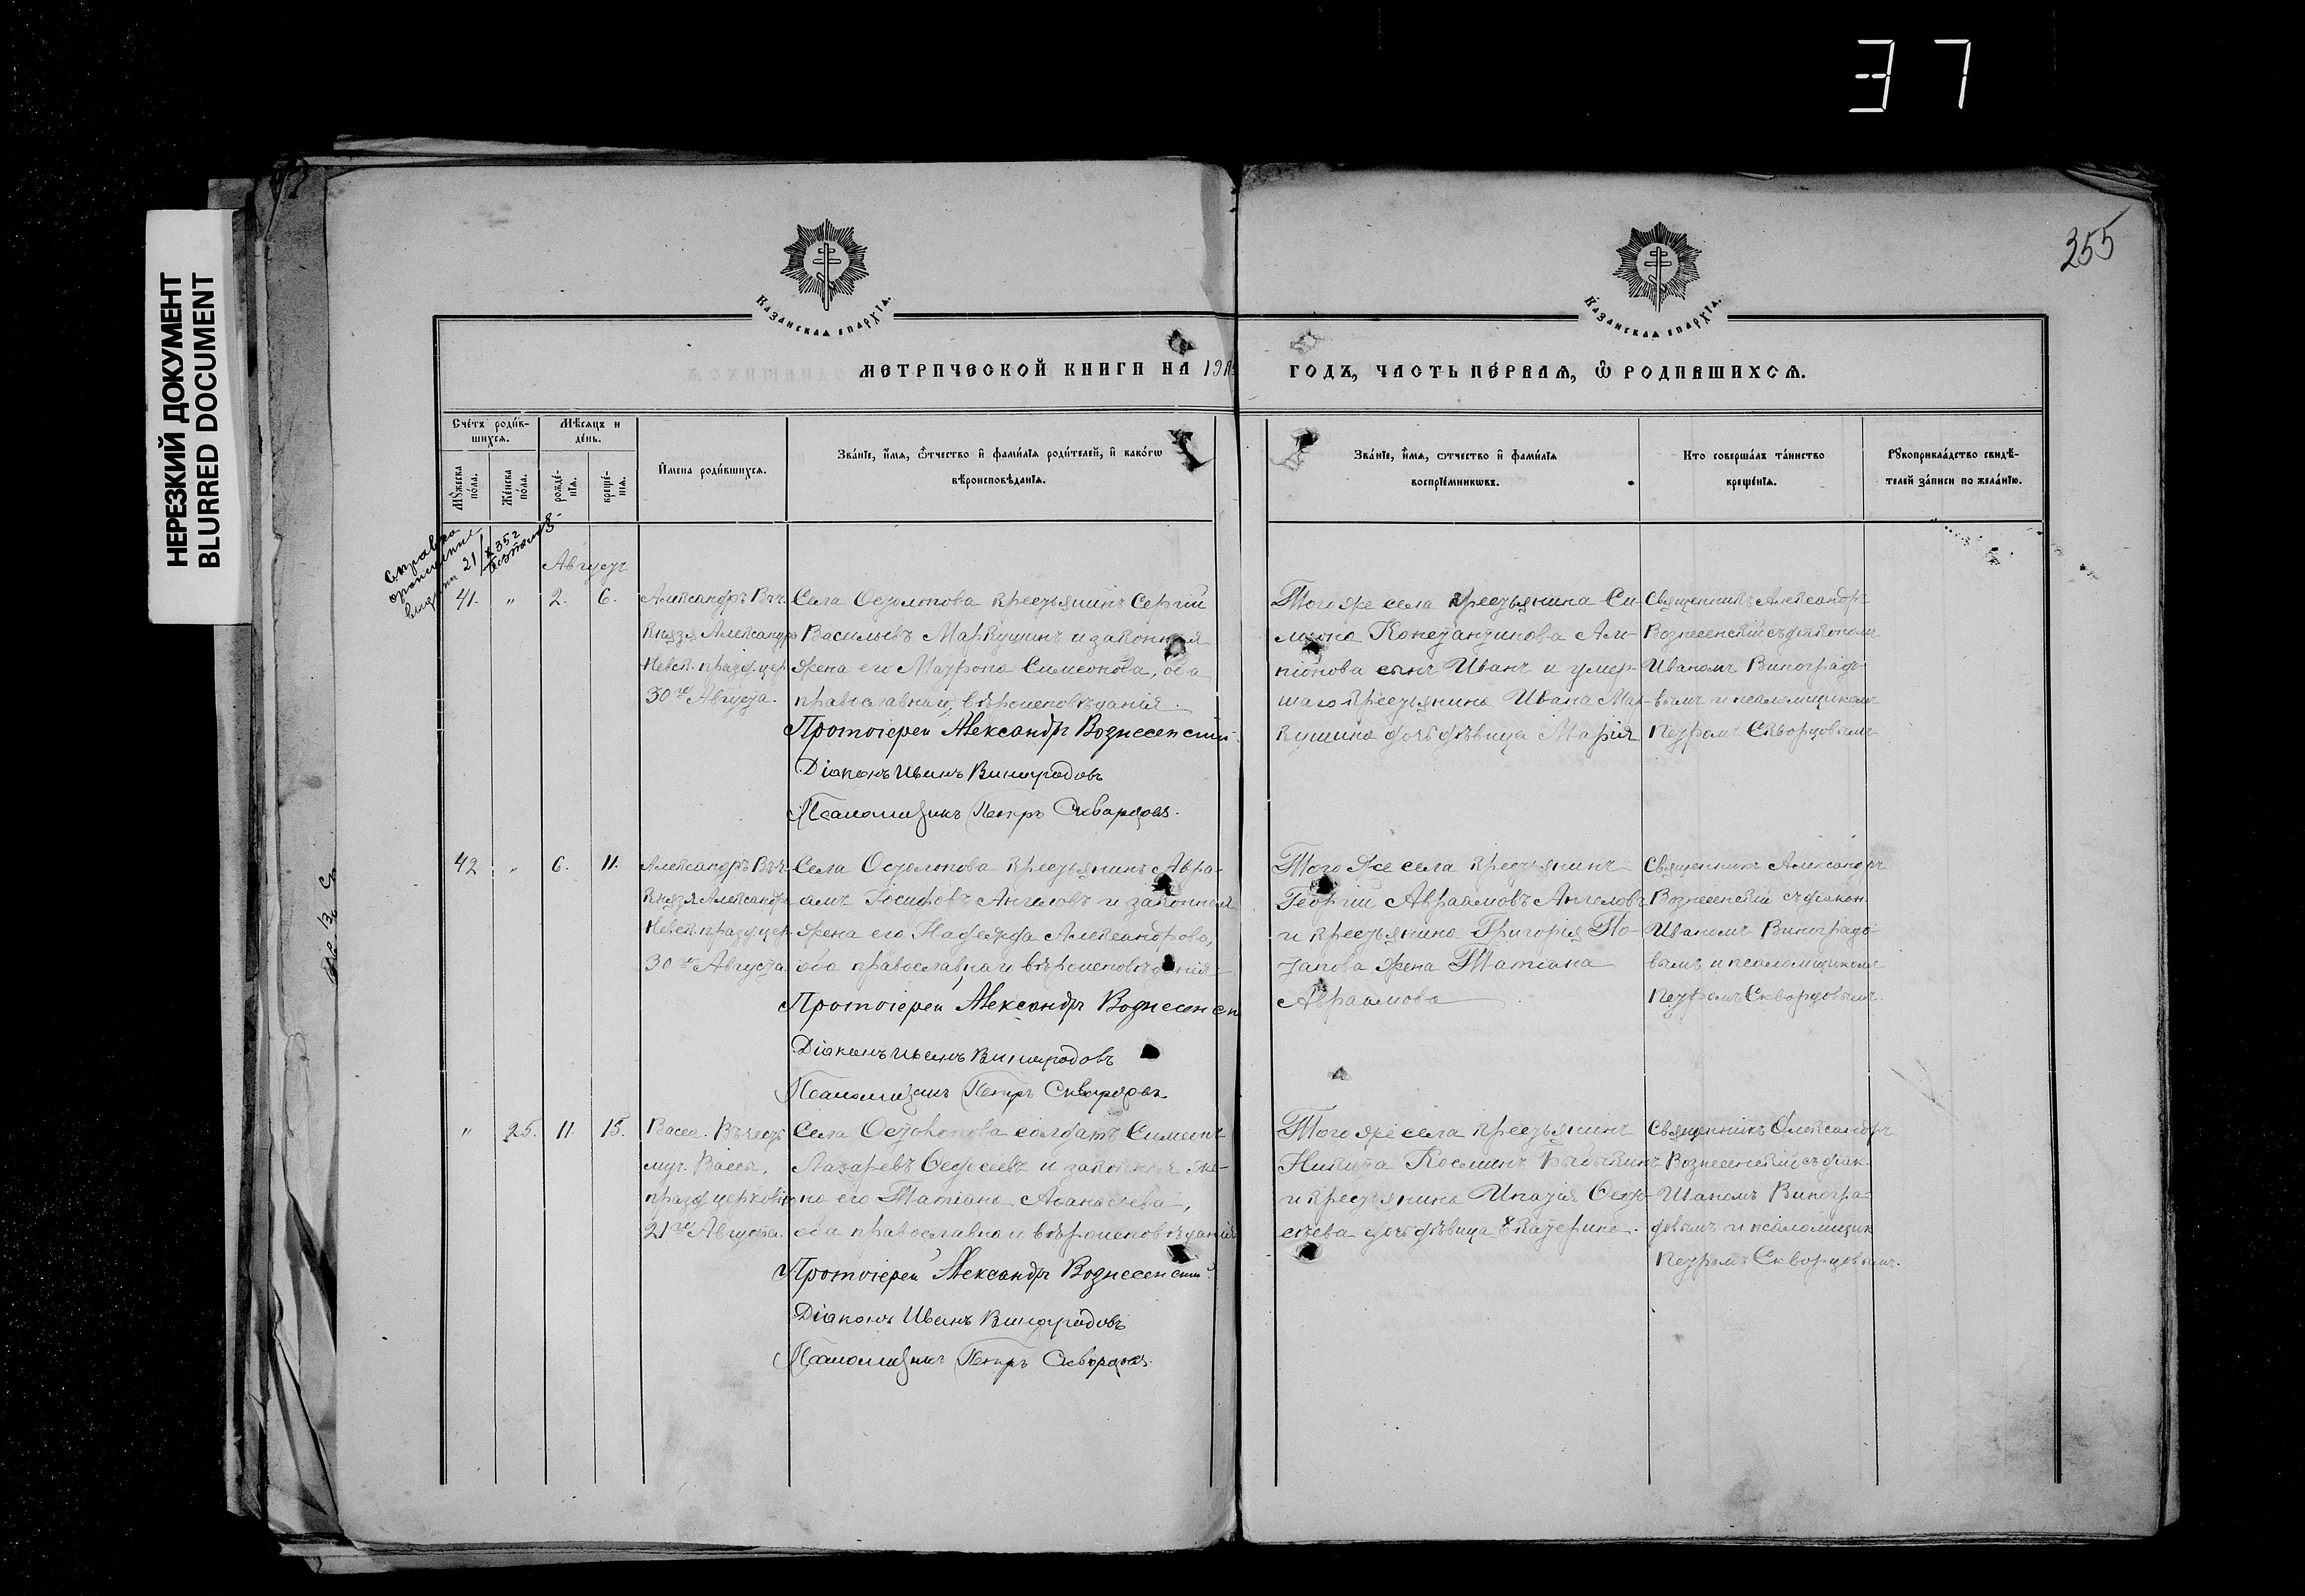 37
НЕРЕЗКИЙ ДОКУМЕНТ
BLURRED DOCUMENT
355
Казанская епархїа.
Казанская епархїа.
МЕТРИЧЕСКОЙ КНИГИ НА 191
ГОДЪ, ЧАСТЬ ПЕ́РВАѦ, Ѡ РОДИВШИХСѦ.
Сче́тъ роди́в-
шихсѧ.
Мѣ́сѧцъ и
де́нь.
Мꙋ́жеска
по́ла.
Же́нска
по́ла.
рожде́-
нїѧ.
креще́-
нїѧ.
И́мена роди́вшихсѧ.
Зва́нїе, и́мѧ, ѻ́тчество и фами́лїѧ роди́телей, и како́гѡ
вѣроисповѣ́данїѧ.
Зва́нїе, и́мѧ, ѻ́тчество и фами́лїѧ
воспрїе́мникѡвъ.
Кто соверша́лъ та́инство
креще́нїѧ.
Рꙋкоприкла́дство свидѣ́-
телей за́писи по жела́нїю.
справка
21
Августъ
41. " 2. 6.
Александръ Въ ч.
Князя Александра
Невск. празд. цер.
30го Августа.
Села Остолопова крестьянинъ Сергій
Васильевъ Маркушинъ и законная
жена его Матрона Симеонова, оба
православнаго вѣроисповѣданія.
Протоіерей Александръ Вознесенскій
Діаконъ Иванъ Виноградовъ
Псаломщикъ Петръ Скворцовъ.
Того же села крестьянина Си-
меона Константинова Ам-
піонова сынъ Иванъ и умер-
шаго крестьянина Ивана Мар-
кушина дочь дѣвица Марія
Священникъ Александръ
Вознесенскій съ діаконом
Иваномъ Виноградо-
вымъ и псаломщикомъ
Петромъ Скворцовымъ
42 " 6. 11.
Александръ Въ ч.
Князя Александра
Невск. празд. цер.
30го Августа.
Села Остолопова крестьянинъ Авра-
амъ Іосифовъ Ангеловъ и законная
жена его Надежда Александрова,
оба православнаго вѣроисповѣданія
Протоіерей Александръ Вознесенск
Діаконъ Иванъ Виноградовъ
Псаломщикъ Петръ Скворцовъ.
Того же села крестьянинъ
Георгій Авраамовъ Ангеловъ
и крестьянина Григорія По-
тапова жена Татіана
Авраамова
Священникъ Александръ
Вознесенскій съ діакон.
Иваномъ Виноградо-
вымъ и псаломщикомъ
Петромъ Скворцовымъ.
" 25. 11. 15.
Васса. Въ честь
муч. Вассы,
празд. церковію
21го Августа.
Села Остолопова солдатъ Симеонъ
Лазаревъ Федсеевъ и законная же-
на его Татіана Аѳанасьева,
оба православнаго вѣроисповѣданія
Протоіерей Александръ Вознесенскій
Діаконъ Иванъ Виноградовъ
Псаломщикъ Петръ Скворцовъ.
Того же села крестьянинъ
Никита Косминъ
и крестьянина Игнатія
дочь дѣвица Екатерина.
Священникъ Александръ
Вознесенскій съ діак.
Иваномъ Виногра-
довымъ и псаломщик
Петромъ Скворцовымъ.